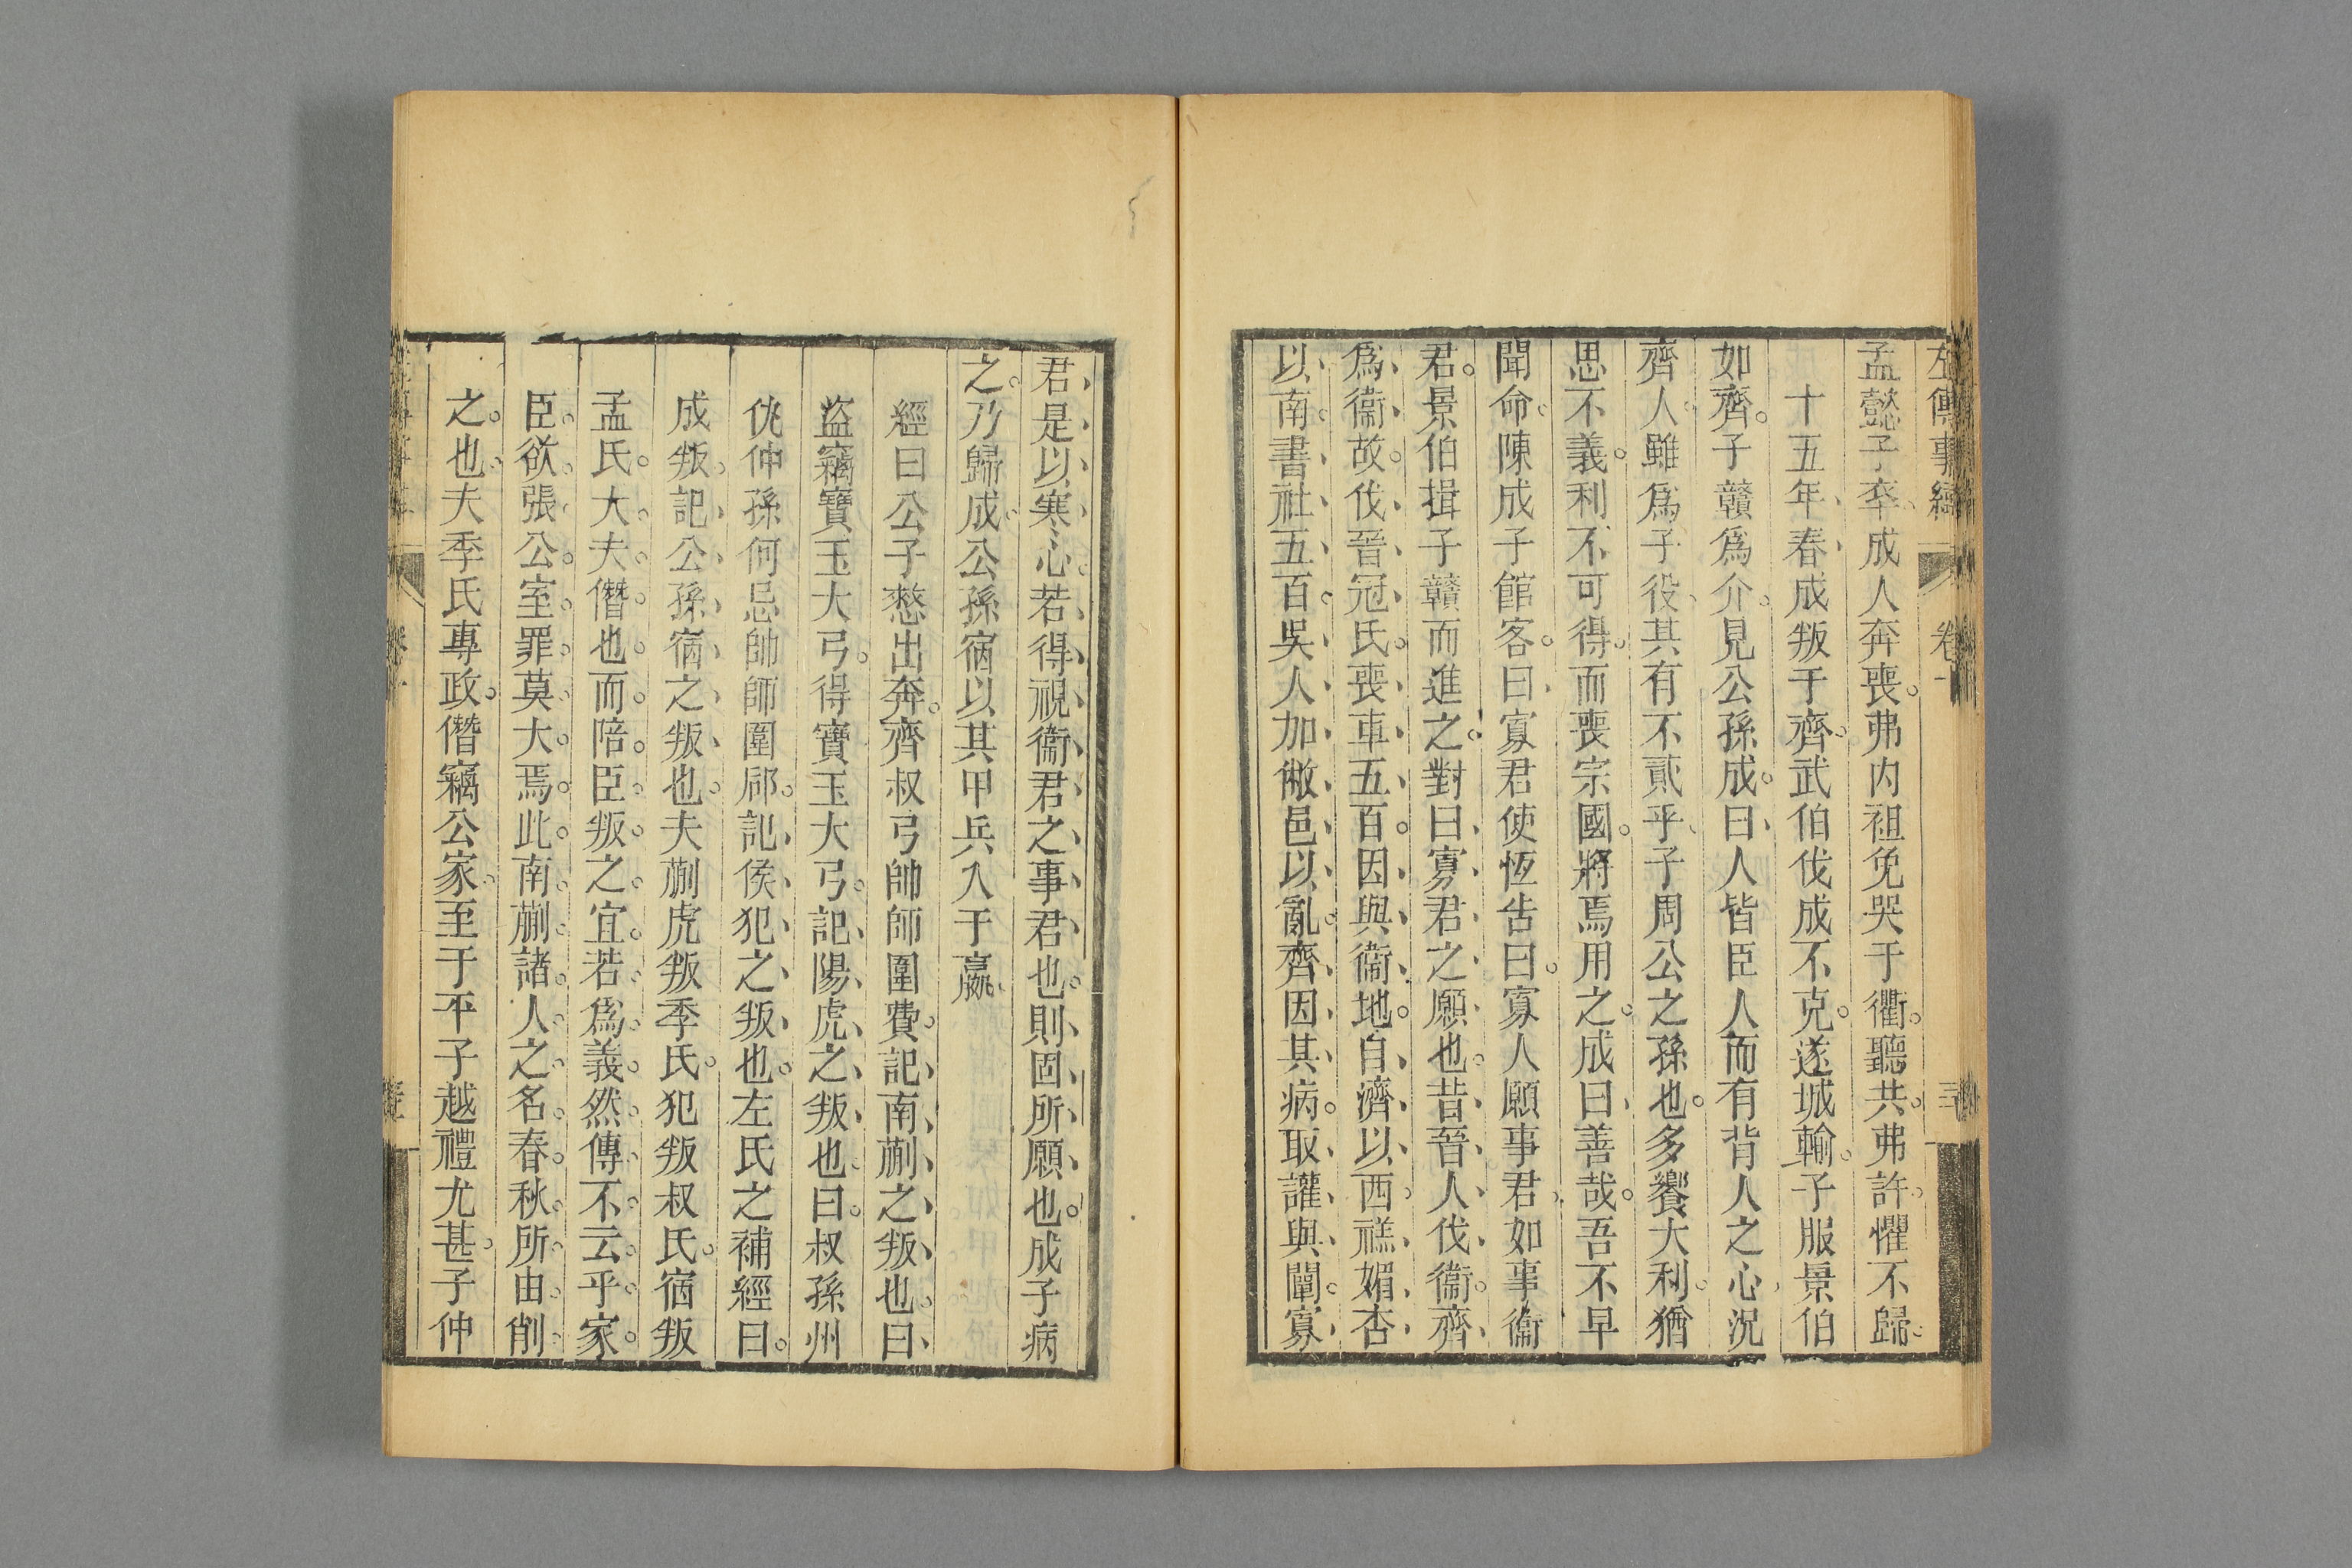 左傳事緯
卷一
孟懿子卒成人奔喪弗內袒免哭于衢聽共弗許懼不歸
十五年春成叛于齊武伯伐成不克遂城輸子服景伯
如齊子贛爲介見公孫成曰人皆臣人而有背人之心況
齊人雖爲子役其有不貳乎子周公之孫也多饗大利猶
思不義利不可得而喪宗國將焉用之成曰善哉吾不早
聞命陳成子館客曰寡君使恆告曰寡人願事君如事衞
君景伯揖子贛而進之對曰寡君之願也昔晉人伐衞齊
爲衞故伐晉冠氏喪車五百因與衞地自濟以西禚媚杏
以南書社五百吳人加敝邑以亂齊因其病取讙與闡寡
君是以寒心若得視衞君之事君也則固所願也成子病
之乃歸成公孫宿以其甲兵入于嬴
經曰公子憖出奔齊叔弓帥師圍費記南蒯之叛也曰
盜竊寶玉大弓得寶玉大弓記陽虎之叛也曰叔孫州
仇仲孫何忌帥師圍郈記侯犯之叛也左氏之補經曰
成叛記公孫宿之叛也夫蒯虎叛季氏犯叛叔氏宿叛
孟氏大夫僭也而陪臣叛之宜若爲義然傳不云乎家
臣欲張公室罪莫大焉此南蒯諸人之名春秋所由削
之也夫季氏專政僭竊公家至于平子越禮尤甚子仲